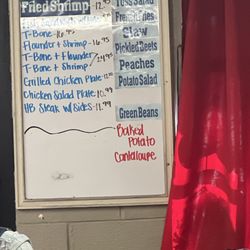 Fried Shrimp - 12.95
Toss Salad
French Fries
T-Bone - 16.95
Slaw
Flounder + Shrimp - 16.95
Pickled Beets
T-Bone + Flounder
24.95
T-Bone + Shrimp
Peaches
Grilled Chicken Plate 12.95
Potato Salad
Chicken Salad Plate 10.99
HB Steak w/ Sides - 12.99
Green Beans
Baked
Potato
Cantaloupe